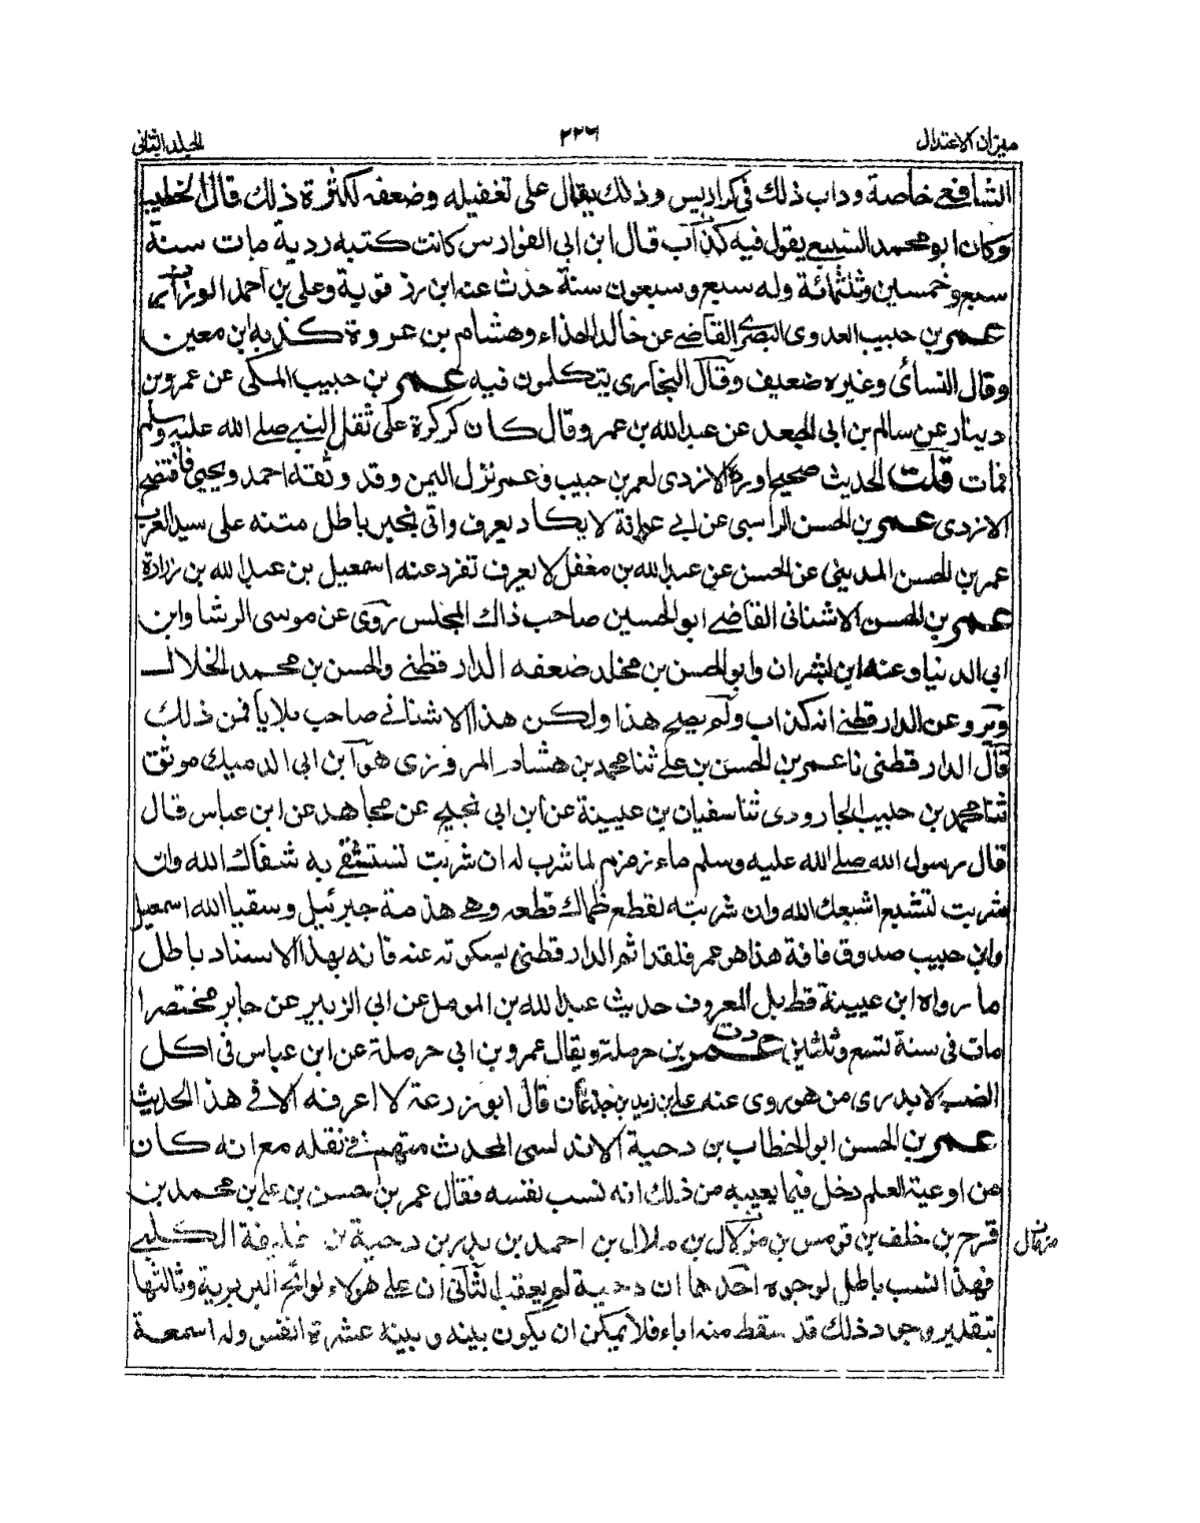 ميزان الاعتدال
٢٢٦
المجلد الثانى
الشافعى خاصة وداب ذلك فى كراريس وذلك يقال على تغفيله وضعفه لكثرة ذلك قال الخطيب
وكان ابو محمد السبيعى يقول فيه كذاب قال ابن ابى الفوارس كانت كتبه ردية مات سنة
سبع وخمسين وثلثمائة وله سبع وسبعون سنة حدث عنه ابن رزقوية وعلى بن احمد الوزان
عمر بن حبيب العدوى البصرى القاضى عن خالد الحذاء وهشام بن عروة كذبه ابن معين
وقال النسائى وغيره ضعيف وقال البخارى يتكلمون فيه عمر بن حبيب المكى عن عمرو بن
دينار عن سالم بن ابى الجعد عن عبدالله بن عمر وقال كان كركرة على ثقل النبى صلى الله عليه وسلم
فمات قلت الحديث صحيح اورده الازدى لعمر بن حبيب وعمر نزل اليمن وقد وثقه احمد ويحيى فافتضح
الازدى عمر بن الحسن الراسبى عن ابى عوانة لا يكاد يعرف واتى بخبر باطل متنه على سيد العرب
عمر بن الحسن المدينى عن الحسن عن عبدالله بن مغفل لا يعرف تفرد عنه اسمعيل بن عبدالله بن زرارة
عمر بن الحسن الاشنانى القاضى ابو الحسين صاحب ذاك المجلس روى عن موسى الوشا وابن
ابى الدنيا وعنه ابن بشران وابو الحسن بن مخلد ضعفه الدارقطنى والحسن بن محمد الخلال
ويروى عن الدارقطنى انه كذاب ولم يصح هذا ولكن هذا الاشنانى صاحب بلايا فمن ذلك
قال الدارقطنى نا عمر بن الحسن بن على ثنا محمد بن هشام المروزى هو ابن ابى الدميك موثق
ثنا محمد بن حبيب الجارودى ثنا سفيان بن عيينة عن ابن ابى نجيح عن مجاهد عن ابن عباس قال
قال رسول الله صلى الله عليه وسلم ماء زمزم لما شرب له ان شربت لتستشفى به شفاك الله وان
شربت لتشبع اشبعك الله وان شربته لقطع ظماك قطعه وهى هزمة جبرئيل وسقيا الله اسمعيل
وابن حبيب صدوق فافة هذا هو عمر فلقد اثم الدارقطنى بسكوته عنه فانه بهذا الاسناد باطل
ما رواه ابن عيينة قط بل المعروف حديث عبدالله بن المومل عن ابى الزبير عن جابر مختصرا
مات فى سنة تسع وثلثين عمر بن حرملة ويقال عمرو بن ابى حرملة عن ابن عباس فى اكل
الضب لا يدرى من هو روى عنه على بن زيد بن جدعان قال ابو زرعة لا اعرفه الا فى هذا الحديث
عمر بن الحسن ابو الخطاب بن دحية الاندلسى المحدث متهم فى نقله مع انه كان
من اوعية العلم دخل فيما يعيبه من ذلك انه نسب نفسه فقال عمر بن حسن بن على بن محمد بن
فرح بن خلف بن قومس بن مزلال بن ملال بن احمد بن بدر بن دحية بن خليفة الكلبى
فهذا النسب باطل لوجوه احدها ان دحية لم يعقب الثانى ان على هولاء لوائح البربرية وثالثها
بتقدير وجود ذلك قد سقط منه اباء فلا يمكن ان يكون بينه وبينه عشرة انفس وله اسمعة